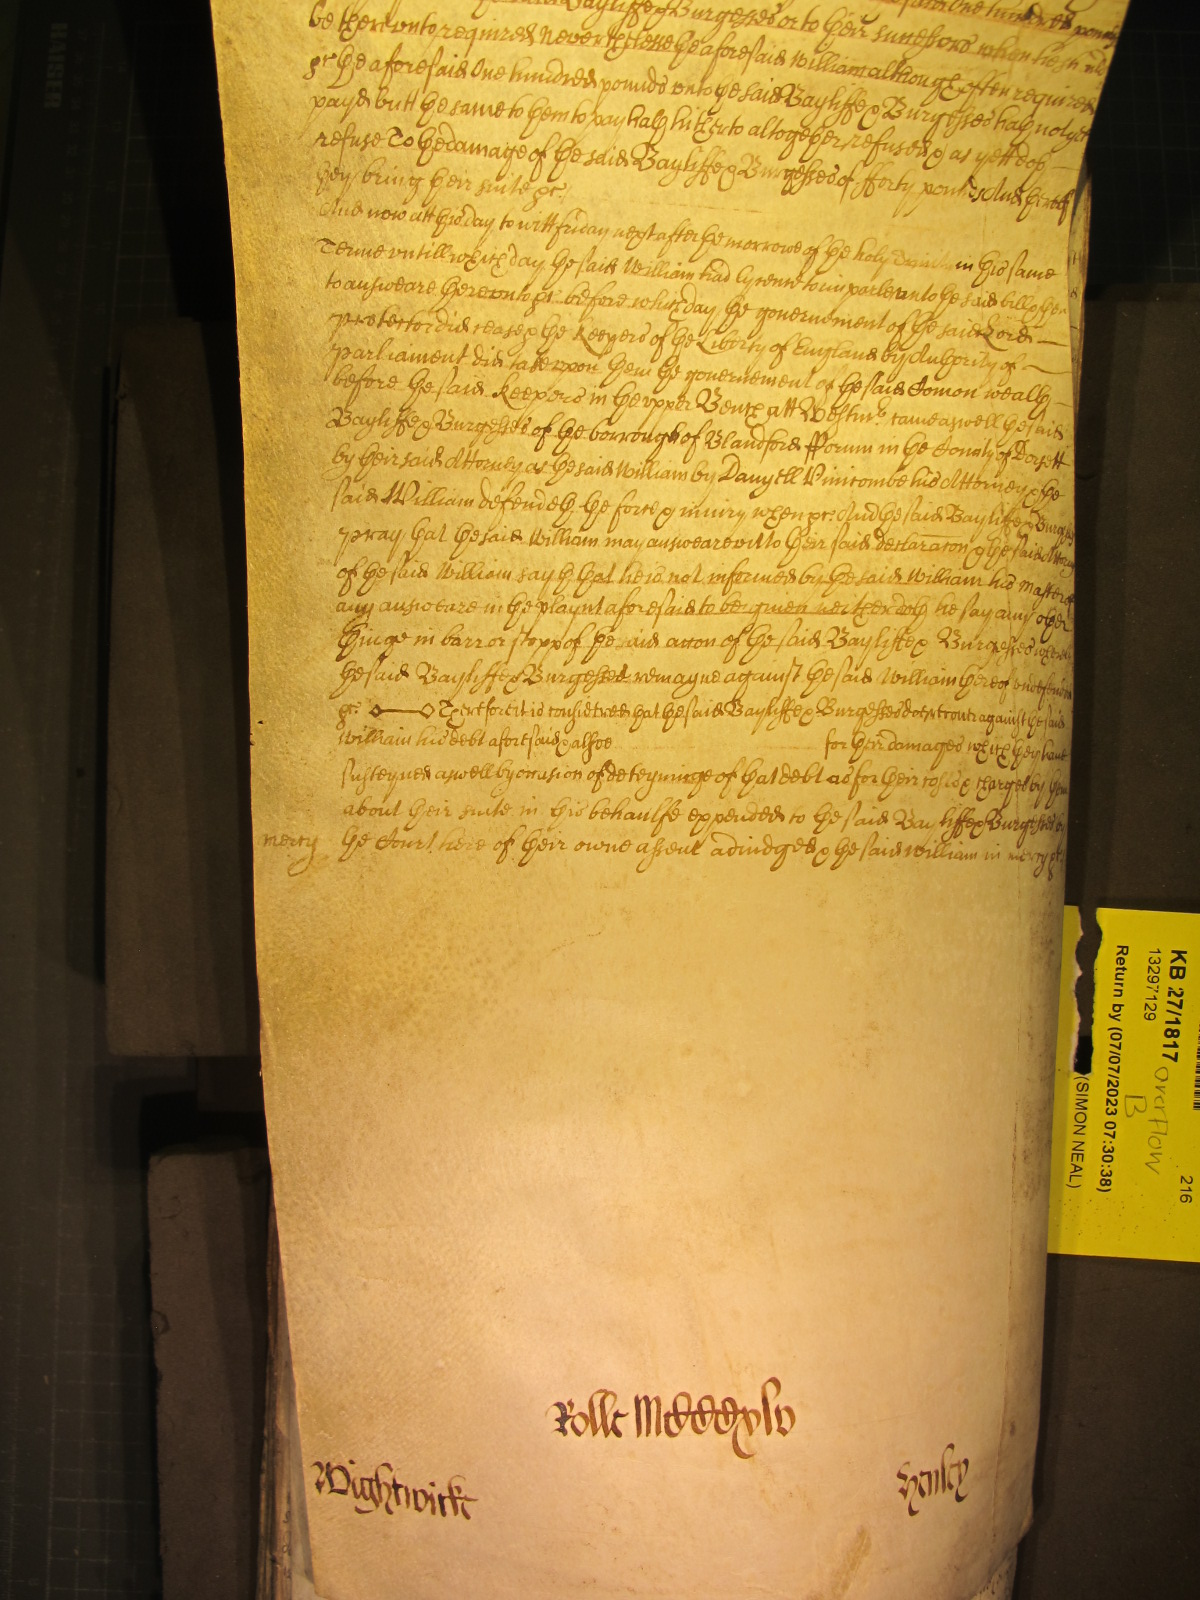 Bayliffe & Burgesses or to their successors when
be thereunto required Neverthelesse the aforesaid William although often required
&c the aforesaid One hundred pounds unto the said Bayliffe & Burgesses hath not yet
payd but the same to them to pay hath hitherto altogether refused & as yett doth
refuse To the damage of the said Bayliffe & Burgesses of fforty pounds And thereof
they bring their suite &c
And now att this day to witt ffriday next after the morrowe of the holy Trinity in this same
Terme untill which day the said William had lycence to imparle unto the said bill & then
to answeare thereunto &c before which day the governement of the said Lord
protector did cease & the Keepers of the Liberty of England by Authority of
Parliament did take upon them the governement of the said Comon wealth
before the said Keepers in the upper Bench att Westmr. came aswell the said
Bayliffe & Burgesses of the borrough of Blandford fforum in the County of Dorsett
by their said Attorney as the said William by Danyell Pinicombe his Attorney & the
said William defendeth the force & iniury when &c And the said Bayliffe & Burgesses
pray that the said William may answeare unto their said declaracon & the said Attorney
of the said William sayth that he is not informed by the said William his master of
any answeare in the playnt aforesaid to be given neither doth he say any other
thinge in barr or stopp of the said accon of the said Bayliffe & Burgesses whereby
the said Bayliffe & Burgesses remayne against the said William thereof undefended
&c Therefore it is considered that the said Bayliffe & Burgesses doe recover against the said
William his debt aforesaid & alsoe for their damages which they have
susteyned aswell by occasion of deteyninge of that debt as for their costs & charges by them
about their suite in this behaulfe expended to the said Bayliffe & Burgesses by
mercy the Court here of their owne assent adiudged & the said William in mercy &c
Rolle
Wightwicke
Henley
KB 27/1817
13297129
Return by (07/07/2023 07:30:38)
(SIMON NEAL)
overflow
B
216